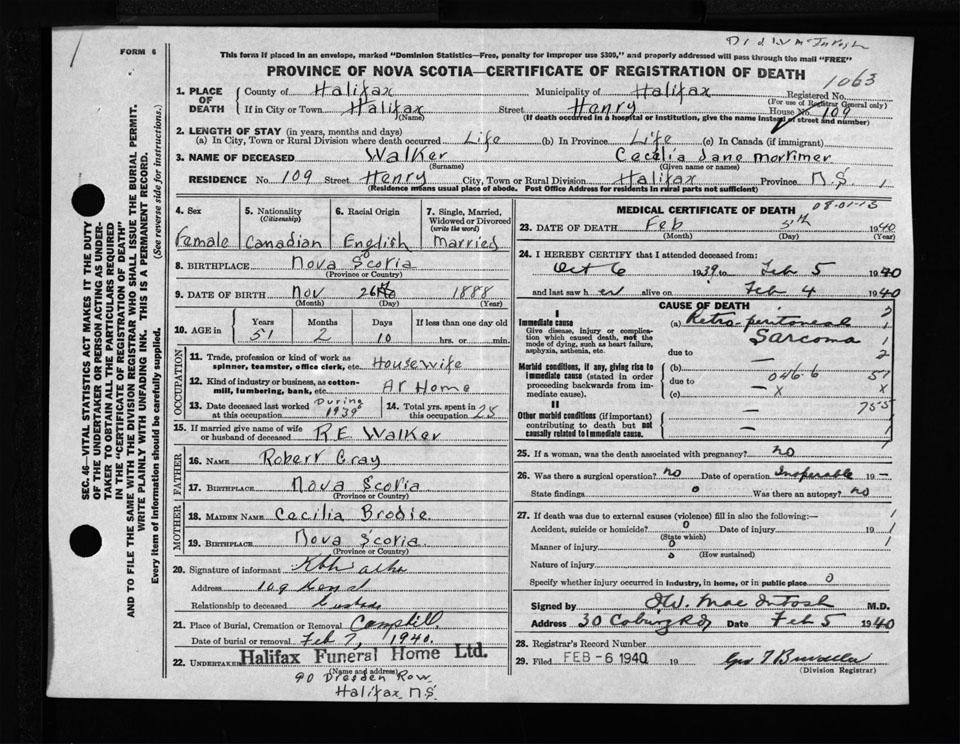 FORM 6
This form if placed in an envelope, marked "Dominion Statistics—Free, penalty for improper use $300," and properly addressed will pass through the mail "FREE"
PROVINCE OF NOVA SCOTIA—CERTIFICATE OF REGISTRATION OF DEATH
1063
1. PLACE OF DEATH
County of Halifax Municipality of Halifax Registered No.
(For use of Registrar General only)
If in City or Town Halifax Street Henry House No. 109
(Name) (If death occurred in a hospital or institution, give the name instead of street and number)
2. LENGTH OF STAY (in years, months and days)
(a) In City, Town or Rural Division where death occurred Life (b) In Province Life (c) In Canada (if immigrant)
3. NAME OF DECEASED Walker Cecelia Jane Mortimer
(Surname) (Given name or names)
RESIDENCE No. 109 Street Henry City, Town or Rural Division Halifax Province N.S. 1
(Residence means usual place of abode. Post Office Address for residents in rural parts not sufficient)
SEC. 46—VITAL STATISTICS ACT MAKES IT THE DUTY
OF THE UNDERTAKER OR PERSON ACTING AS UNDER-
TAKER TO OBTAIN ALL THE PARTICULARS REQUIRED
IN THE "CERTIFICATE OF REGISTRATION OF DEATH"
AND TO FILE THE SAME WITH THE DIVISION REGISTRAR WHO SHALL ISSUE THE BURIAL PERMIT.
WRITE PLAINLY WITH UNFADING INK. THIS IS A PERMANENT RECORD.
Every item of Information should be carefully supplied. (See reverse side for instructions.)
4. Sex Female
5. Nationality (Citizenship) Canadian
6. Racial Origin English
7. Single, Married, Widowed or Divorced (write the word) Married
8. BIRTHPLACE Nova Scotia
(Province or Country)
9. DATE OF BIRTH Nov 26th 1888
(Month) (Day) (Year)
10. AGE in Years Months Days If less than one day old
51 2 10 hrs. or min.
OCCUPATION
11. Trade, profession or kind of work as spinner, teamster, office clerk, etc. Housewife
12. Kind of industry or business, as cotton-mill, lumbering, bank, etc. At Home
13. Date deceased last worked at this occupation During 1939
14. Total yrs. spent in this occupation 28
15. If married give name of wife or husband of deceased R.E. Walker
FATHER
16. NAME Robert Gray
17. BIRTHPLACE Nova Scotia
(Province or Country)
MOTHER
18. MAIDEN NAME Cecilia Brodie
19. BIRTHPLACE Nova Scotia
(Province or Country)
20. Signature of informant
Address 109
Relationship to deceased
21. Place of Burial, Cremation or Removal
Date of burial or removal Feb 7, 1940.
22. UNDERTAKER Halifax Funeral Home Ltd.
(Name and address)
90 Dresden Row
Halifax N.S.
MEDICAL CERTIFICATE OF DEATH
23. DATE OF DEATH Feb 5th 1940
(Month) (Day) (Year)
24. I HEREBY CERTIFY that I attended deceased from:
Oct 6 1939 to Feb 5 1940
and last saw her alive on Feb 4 1940
CAUSE OF DEATH
I
Immediate cause
Give disease, injury or complication which caused death, not the mode of dying, such as heart failure, asphyxia, asthenia, etc.
(a) Retro-peritoneal
Sarcoma
due to
Morbid conditions, if any, giving rise to immediate cause (stated in order proceeding backwards from immediate cause).
(b)
due to 046-6
(c)
II
Other morbid conditions (if important) contributing to death but not causally related to immediate cause.
25. If a woman, was the death associated with pregnancy? no
26. Was there a surgical operation? no Date of operation Inoperable 19 -
State findings 0 Was there an autopsy? no
27. If death was due to external causes (violence) fill in also the following:—
Accident, suicide or homicide? 0 Date of injury 19
(State which)
Manner of injury 0
(How sustained)
Nature of injury
Specify whether injury occurred in industry, in home, or in public place 0
Signed by W. MacIntosh M.D.
Address 30 Coburg Rd Date Feb 5 1940
28. Registrar's Record Number
29. Filed FEB -6 1940 19
(Division Registrar)